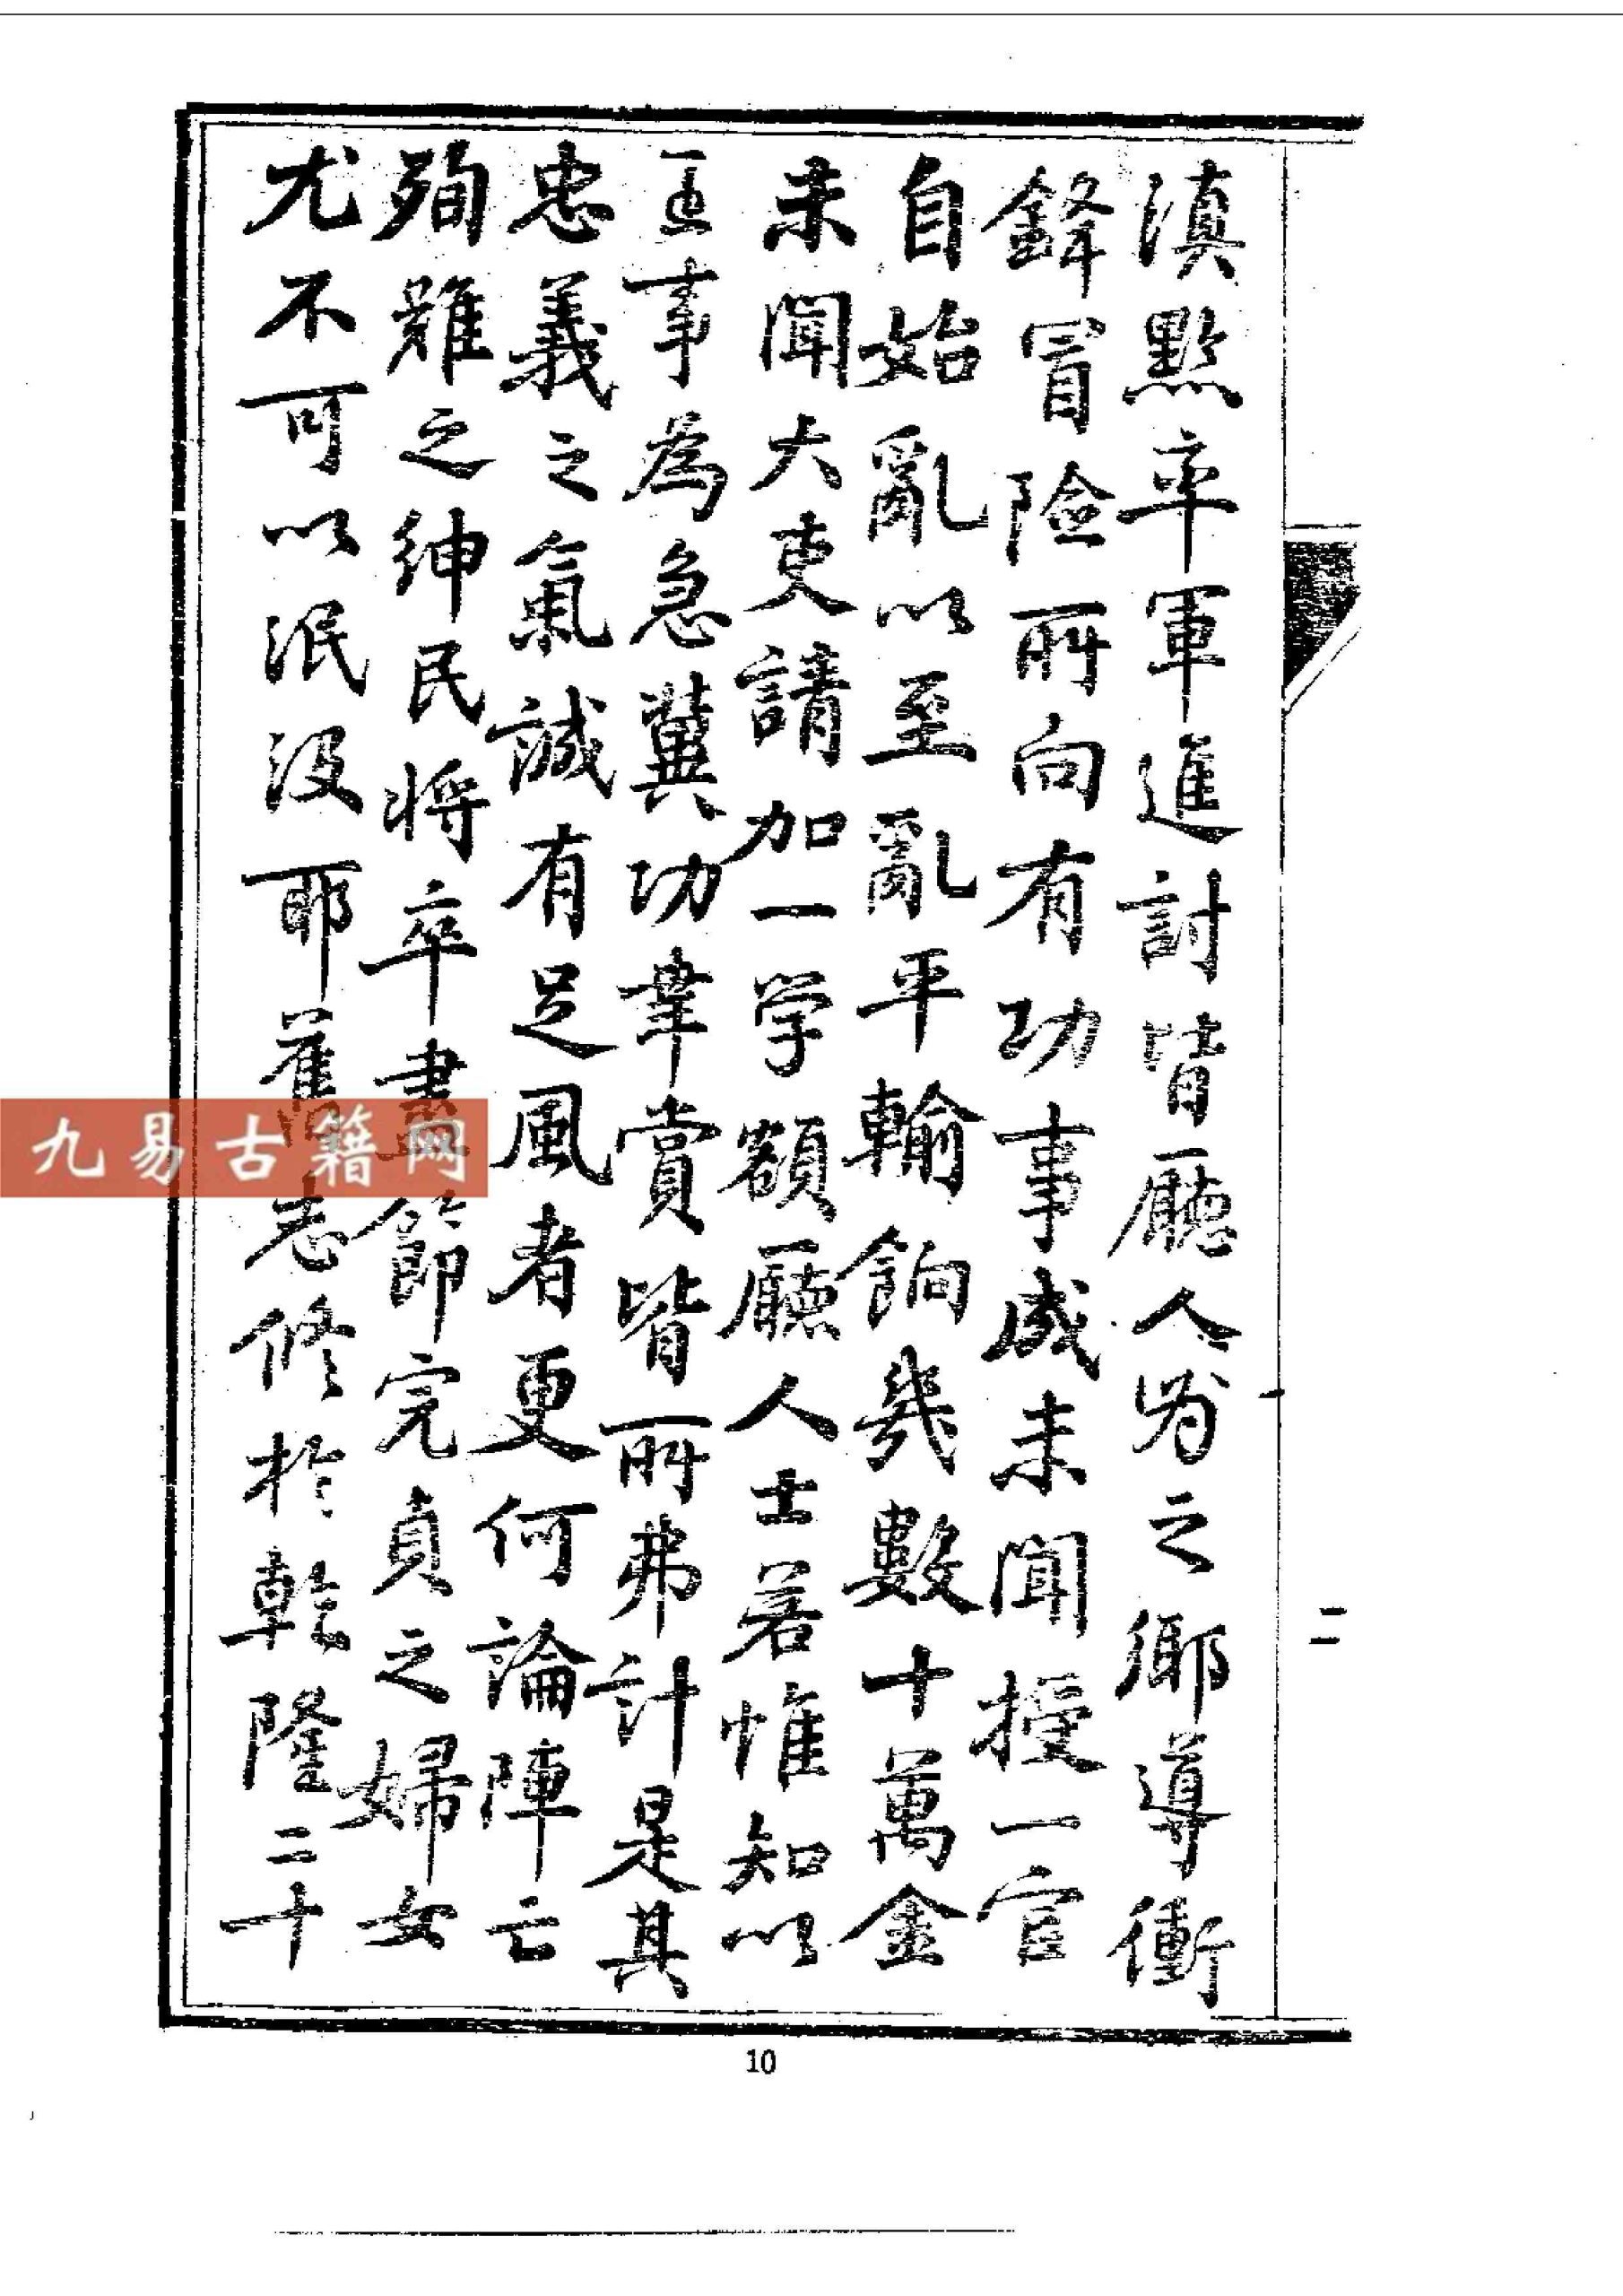 滇黔卒軍進討皆廳人為之鄉導衝
鋒冒險所向有功事成未聞授一官
自始亂以至亂平輸餉幾數十萬金
未聞大吏請加一学額廳人士若惟知以
王事為急冀功幸賞皆所弗計是其
忠義之氣誠有足風者更何論陣亡
殉難之紳民將卒盡節完貞之婦女
尤不可以泯没耶舊志修於乾隆二十
二
10
九易古籍网